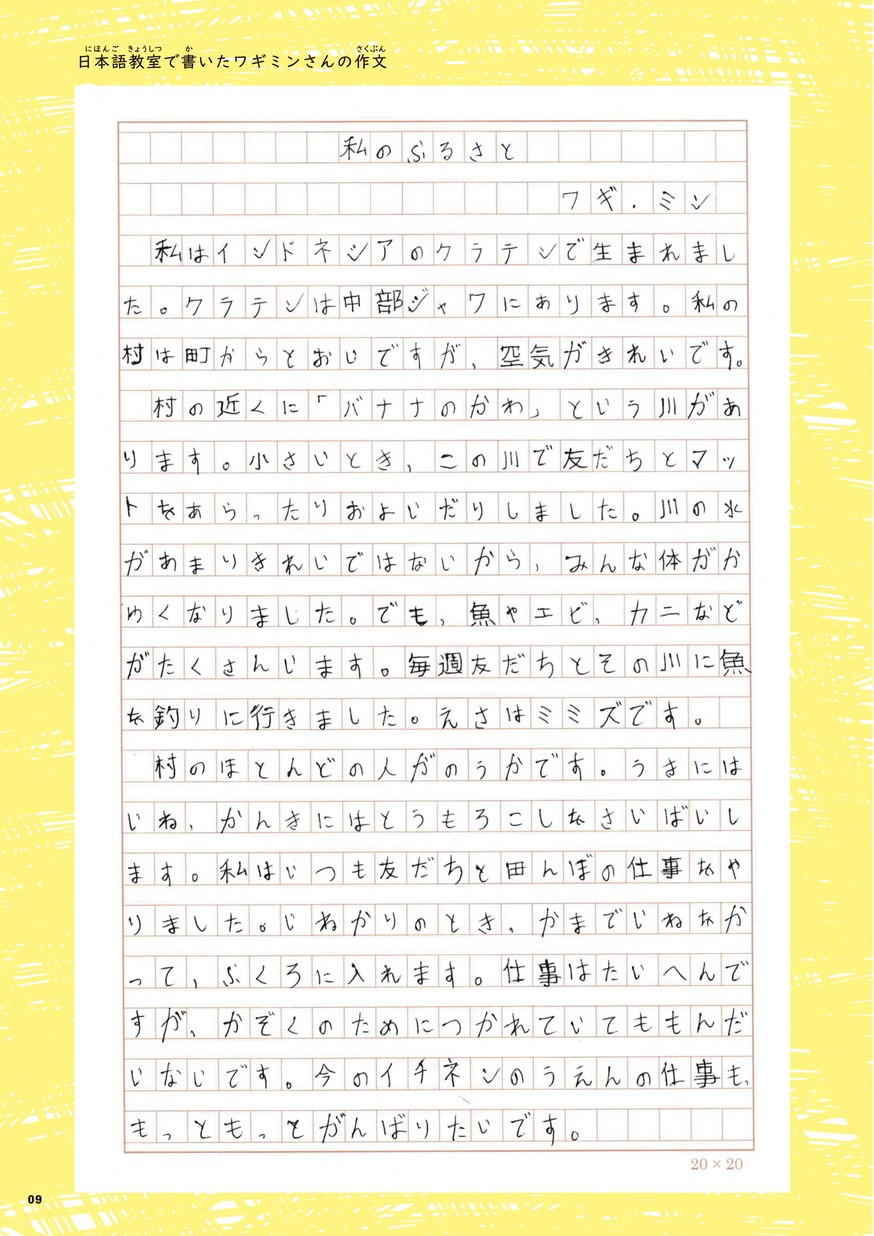 にほんご きょうしつ か さくぶん
日本語教室で書いたワギミンさんの作文
私のふるさと
ワギ．ミン
私はインドネシアのクラテンで生まれまし
た。クラテンは中部ジャワにあります。私の
村は町からとおいですが、空気がきれいです。
村の近くに「バナナのかわ」という川があ
ります。小さいとき、この川で友だちとマッ
トをあらったりおよいだりしました。川の水
があまりきれいではないから、みんな体がか
ゆくなりました。でも、魚やエビ、カニなど
がたくさんいます。毎週友だちとその川に魚
を釣りに行きました。えさはミミズです。
村のほとんどの人がのうかです。うきには
いね、かんきにはとうもろこしをさいばいし
ます。私はいつも友だちと田んぼの仕事をや
りました。いねかりのとき、かまでいねをか
って、ふくろに入れます。仕事はたいへんで
すが、かぞくのためにつかれていてももんだ
いないです。今のイチネンのうえんの仕事も、
もっともっとがんばりたいです。
20×20
09